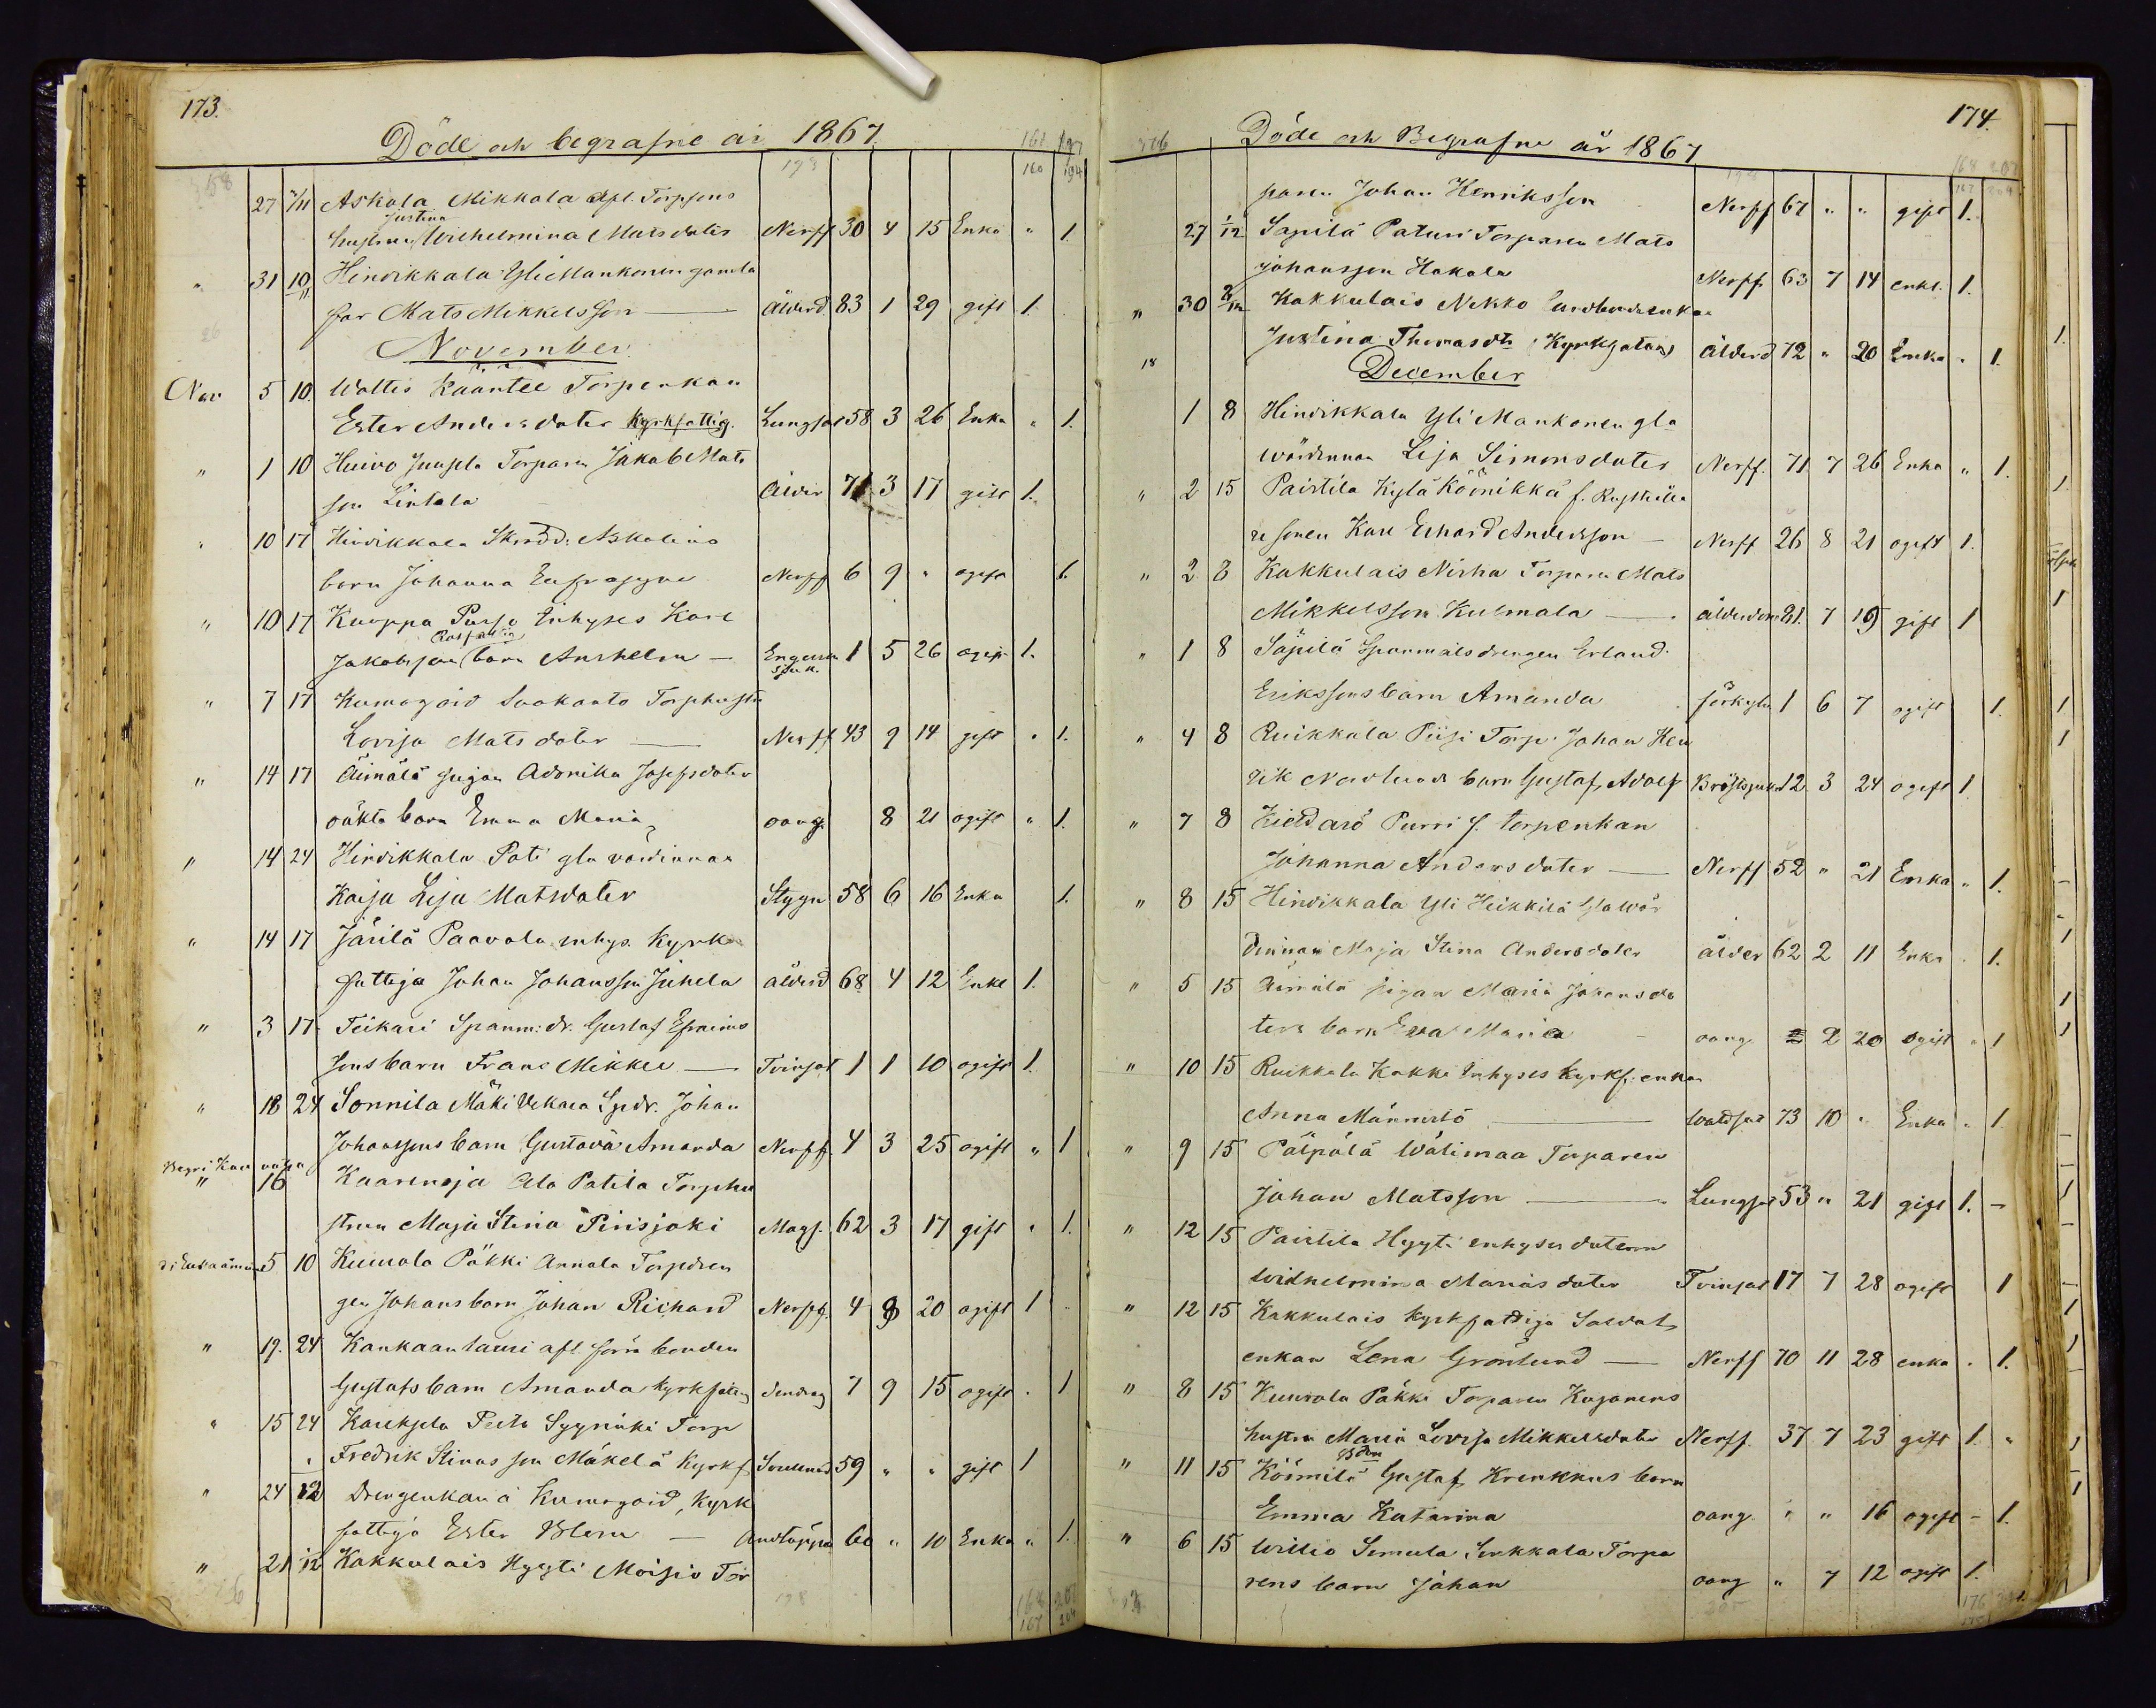 173.
Döde och begrafne år 1867.
27 3/11 Askola Mikkola afl. Torpsons
Justina
hustru Wilhelmina Matsdoter Nerff 30 4 15 Enka " 1.
" 31 10/11 Hindikkala Yli Mankonen gamla
far Mats Mikkelsson — ålderd 83 1 29 gift 1.
November
Nov 5 10. Waltis Kääntee Torpenkan
Ester Andersdoter kyrkfattig. Lungsot 58 3 26 Enka " 1.
" 1 10 Huivo Juusela Torparen Jakob Mats
son Lintala ålder 71 3 17 gift 1.
" 10 17 Hindikkala Skrädd. Askolins
barn Johanna Eufrosyne Nerff 6 9 " ogift 1.
" 10 17 Kuoppa Inhyses Karl
Jakobsson barn Anshelm — Engelska sjuk. 1 5 26 ogift 1.
" 7 17 Kumogård Torphustru
Lovisa Matsdoter — Nerff 43 9 14 gift " 1.
" 14 17 Äimälä pigan Adonika Josefsdoter
oäkta barn Emma Maria oang. 8 21 ogift " 1.
" 14 24 Hindikkala Pati gla värdinnan
Kaisa Lisa Matsdoter Stygn 58 6 16 Enka 1.
" 14 17 Järilä Paavola inhys. Kyrk
fattiga Johan Johansson Juhela ålderd 68 4 12 Enkl 1.
" 3 17 Teikari Spanm: dr. Gustaf Efraims
sons barn Frans Mikkel — Tvinsot 1 1 10 ogift 1.
" 18 24 Sonnila Mäki Vekara Spdr. Johan
Johanssons barn Gustava Amanda Nerff. 4 3 25 ogift " 1
" 16 Kaarenoja Ala Patila Torphu
strun Maja Stina Pirisjoki Mags. 62 3 17 gift " 1.
5 10 Kuurola Päkki Annala Torpdren
gen Johans barn Johan Richard Nerff. 4 8 20 ogift 1
" 19. 24 Kankaanlauri afl. förra bonden
Gustafs barn Amanda kyrkfattig 7 9 15 ogift . 1
" 15 24 Kareksela Perttu Syynimki Torp
Fredrik Stinas son Mäkelä kyrkf. 59 " " gift 1
" 24 1/12 Drengenkan å Kumogård, kyrk
fattiga Ester Blom — Andtäppa 60 " 10 Enka " 1.
" 21 1/12 Kakkulais Hyyti Moisio Tor
174.
Döde och Begrafne år 1867
paren Johan Henriksson Nerff 67 " " gift 1.
27 1/12 Sapilä Paturi Torparen Mats
Johansson Hakala Nerff. 63 7 14 enkl. 1.
" 30 2/12 Kakkulais Nekko landbondeenkan
Justina Thomasdtr (Kyrkfattig) ålderd 72 " 20 Enka " 1.
December
1 8 Hindikkala Yli Mankonen gla
wärdinnan Lisa Simonsdoter Nerff. 71 7 26 Enka " 1.
" 2 15 Pairtila Kylä Köönikkä f. Rusthålla
re sonen Karl Erhard Andersson — Nerff 26 8 21 ogift 1.
" 2 8 Kakkulais Nirha Torparen Mats
Mikkelsson Kulmala — ålderdom 81. 7 19 gift 1
" 1 8 Säpilä Spanmålsdrengen Erland
Erikssons barn Amanda förkyln 1 6 7 ogift 1.
" 4 8 Ruikkala Piisi Torp. Johan Hen
rik Nordlunds barn Gustaf Adolf Bröstsjukd 12 3 24 ogift 1.
" 7 8 Kieldarö Purri f. torpenkan
Johanna Andersdoter — Nerff 52 " 21 Enka " 1.
" 8 15 Hindikkala Yli Heikkilä Gla wär
dinnan Maja Stina Andersdoter ålder 62 2 11 Enka . 1.
" 5 15 Äimälä pigan Maria Johansdo
ters barn Eva Maria — oang 2 20 ogift " 1
" 10 15 Ruikkala Kakki Inhyses kyrkf. enkan
Anna Männistö — Wattsot 73 10 " Enka " 1.
" 9 15 Pälpälä Wälimaa Torparen
Johan Matsson — Lungsot 53 " 21 gift 1. -
" 12 15 Pairtila Hyyti enhyses dotern
Wilhelmina Mariasdoter Tvinsot 17 7 28 ogift 1
" 12 15 Kakkulais kyrkfattiga Soldats
enkan Lena Grönlund — Nerff 70 11 28 enka " 1.
" 8 15 Kuurola Päkki Torparen Kujanens
hustru Maria Lovisa Mikkelsdoter Nerff. 37 7 23 gift 1. "
" 11 15 Köömilä Gustaf Krenkkus barn
Emma Katarina oang. " " 16 ogift - 1.
" 6 15 Willio Simula Torpa
rens barn Johan oang " 7 12 ogift 1.